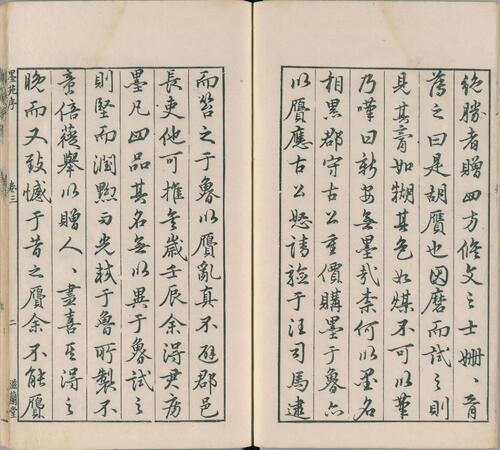 絶勝者贈四方脩文之士姍〻胥
薄之曰是胡贋也因磨而試之則
見其膏如糊其色如煤不可以筆
乃嘩曰新安無墨哉柰何以墨名
相黒郡守古公重價購墨于魯亦
以贋應古公怒請諗于汪司馬逮
而笞之于魯以贋亂真不避郡邑
長吏他可推矣歲壬辰余得尹房
墨凡四品其名無以異于魯試之
則堅而潤黝而光較于魯所製不
啻倍蓰舉以贈人〻盡喜其得之
晚而又致憾于昔之贋余不能贋
墨苑序
卷三
二
滋蘭堂